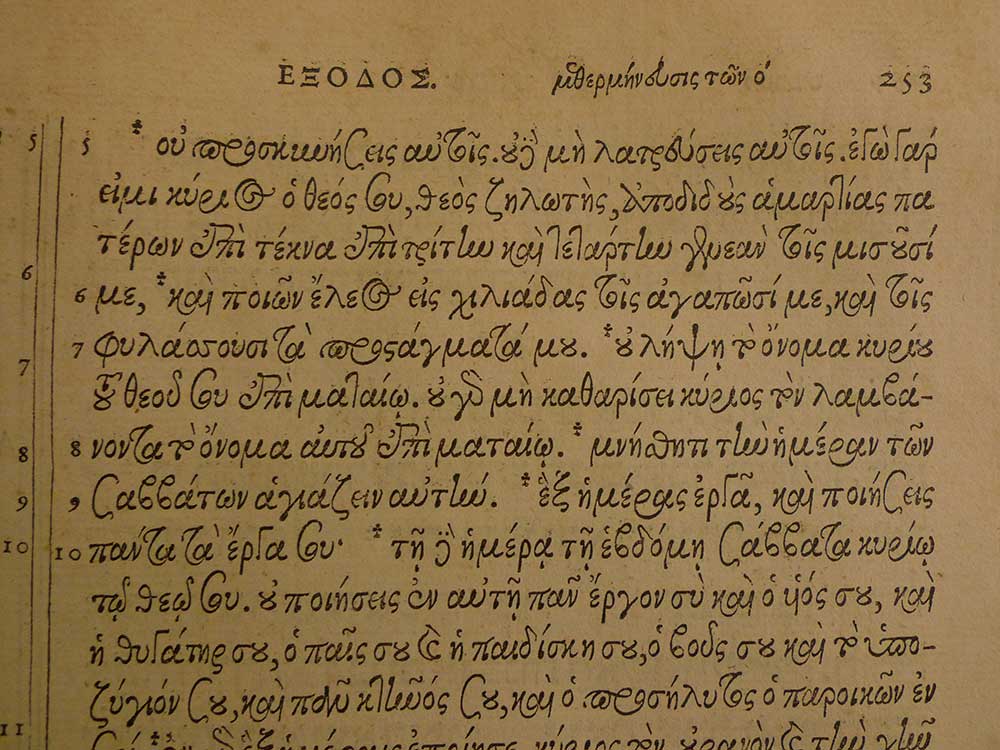 ΕΞΟΔΟΣ. μεθερμήνευσις τῶν ο´ 253
5 5 οὐ προσκυνήσεις αὐτοῖς. οὐδὲ μὴ λατρεύσεις αὐτοῖς. ἐγὼ γάρ
εἰμι κύριος ὁ θεός σου, θεὸς ζηλωτὴς, ἀποδιδοὺς ἁμαρτίας πα
τέρων ἐπὶ τέκνα ἐπὶ τρίτην καὶ τετάρτην γενεὰν τοῖς μισοῦσί
6 6 με, καὶ ποιῶν ἔλεος εἰς χιλιάδας τοῖς ἀγαπῶσί με, καὶ τοῖς
7 7 φυλάσσουσι τὰ προστάγματά μου. οὐ λήψῃ τὸ ὄνομα κυρίου
τοῦ θεοῦ σου ἐπὶ ματαίῳ. οὐ γὸ μὴ καθαρίσει κύριος τὸν λαμβά-
8 8 νοντα τὸ ὄνομα αὐτοῦ ἐπὶ ματαίῳ. μνήσθητι τὴν ἡμέραν τῶν
9 9 σαββάτων ἁγιάζειν αὐτήν. ἓξ ἡμέρας ἐργᾷ, καὶ ποιήσεις
10 10 πάντα τὰ ἔργα σου· τῇ δὲ ἡμέρᾳ τῇ ἑβδόμῃ σάββατα κυρίῳ
τῷ θεῷ σου. οὐ ποιήσεις ἐν αὐτῇ πᾶν ἔργον σὺ καὶ ὁ υἱός σου, καὶ
ἡ θυγάτηρ σου, ὁ παῖς σου καὶ ἡ παιδίσκη σου, ὁ βοῦς σου καὶ τὸ ὑπο-
ζύγιόν σου, καὶ πᾶν κτῆνός σου, καὶ ὁ προσήλυτος ὁ παροικῶν ἐν
11